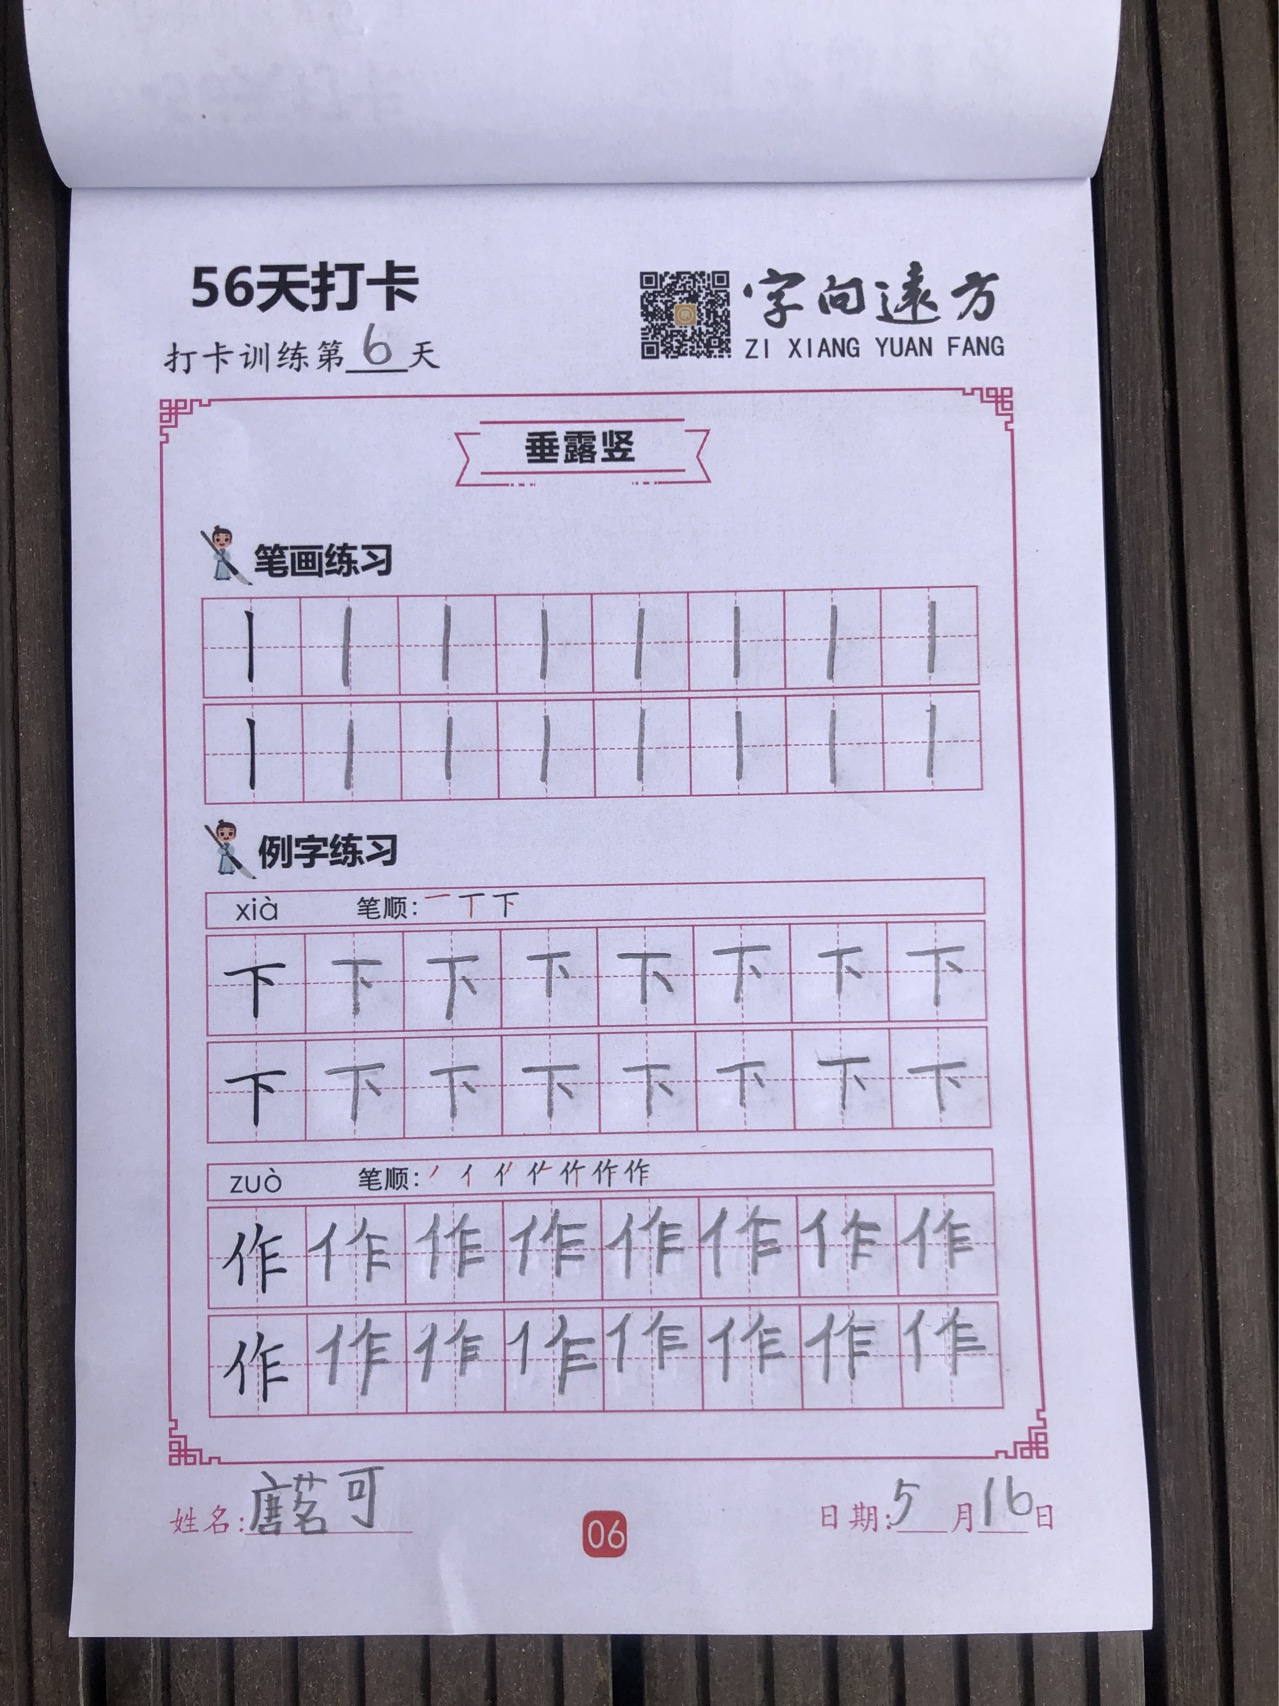 56天打卡
打卡训练第6天
字向遠方
ZI XIANG YUAN FANG
垂露竖
笔画练习
丨丨丨丨丨丨丨丨
丨丨丨丨丨丨丨丨
例字练习
xià 笔顺:一丅下
下下下下下下下下
下下下下下下下下
zuò 笔顺:丿亻作
作作作作作作作作
作作作作作作作作
姓名:唐茗可
06
日期:5月16日